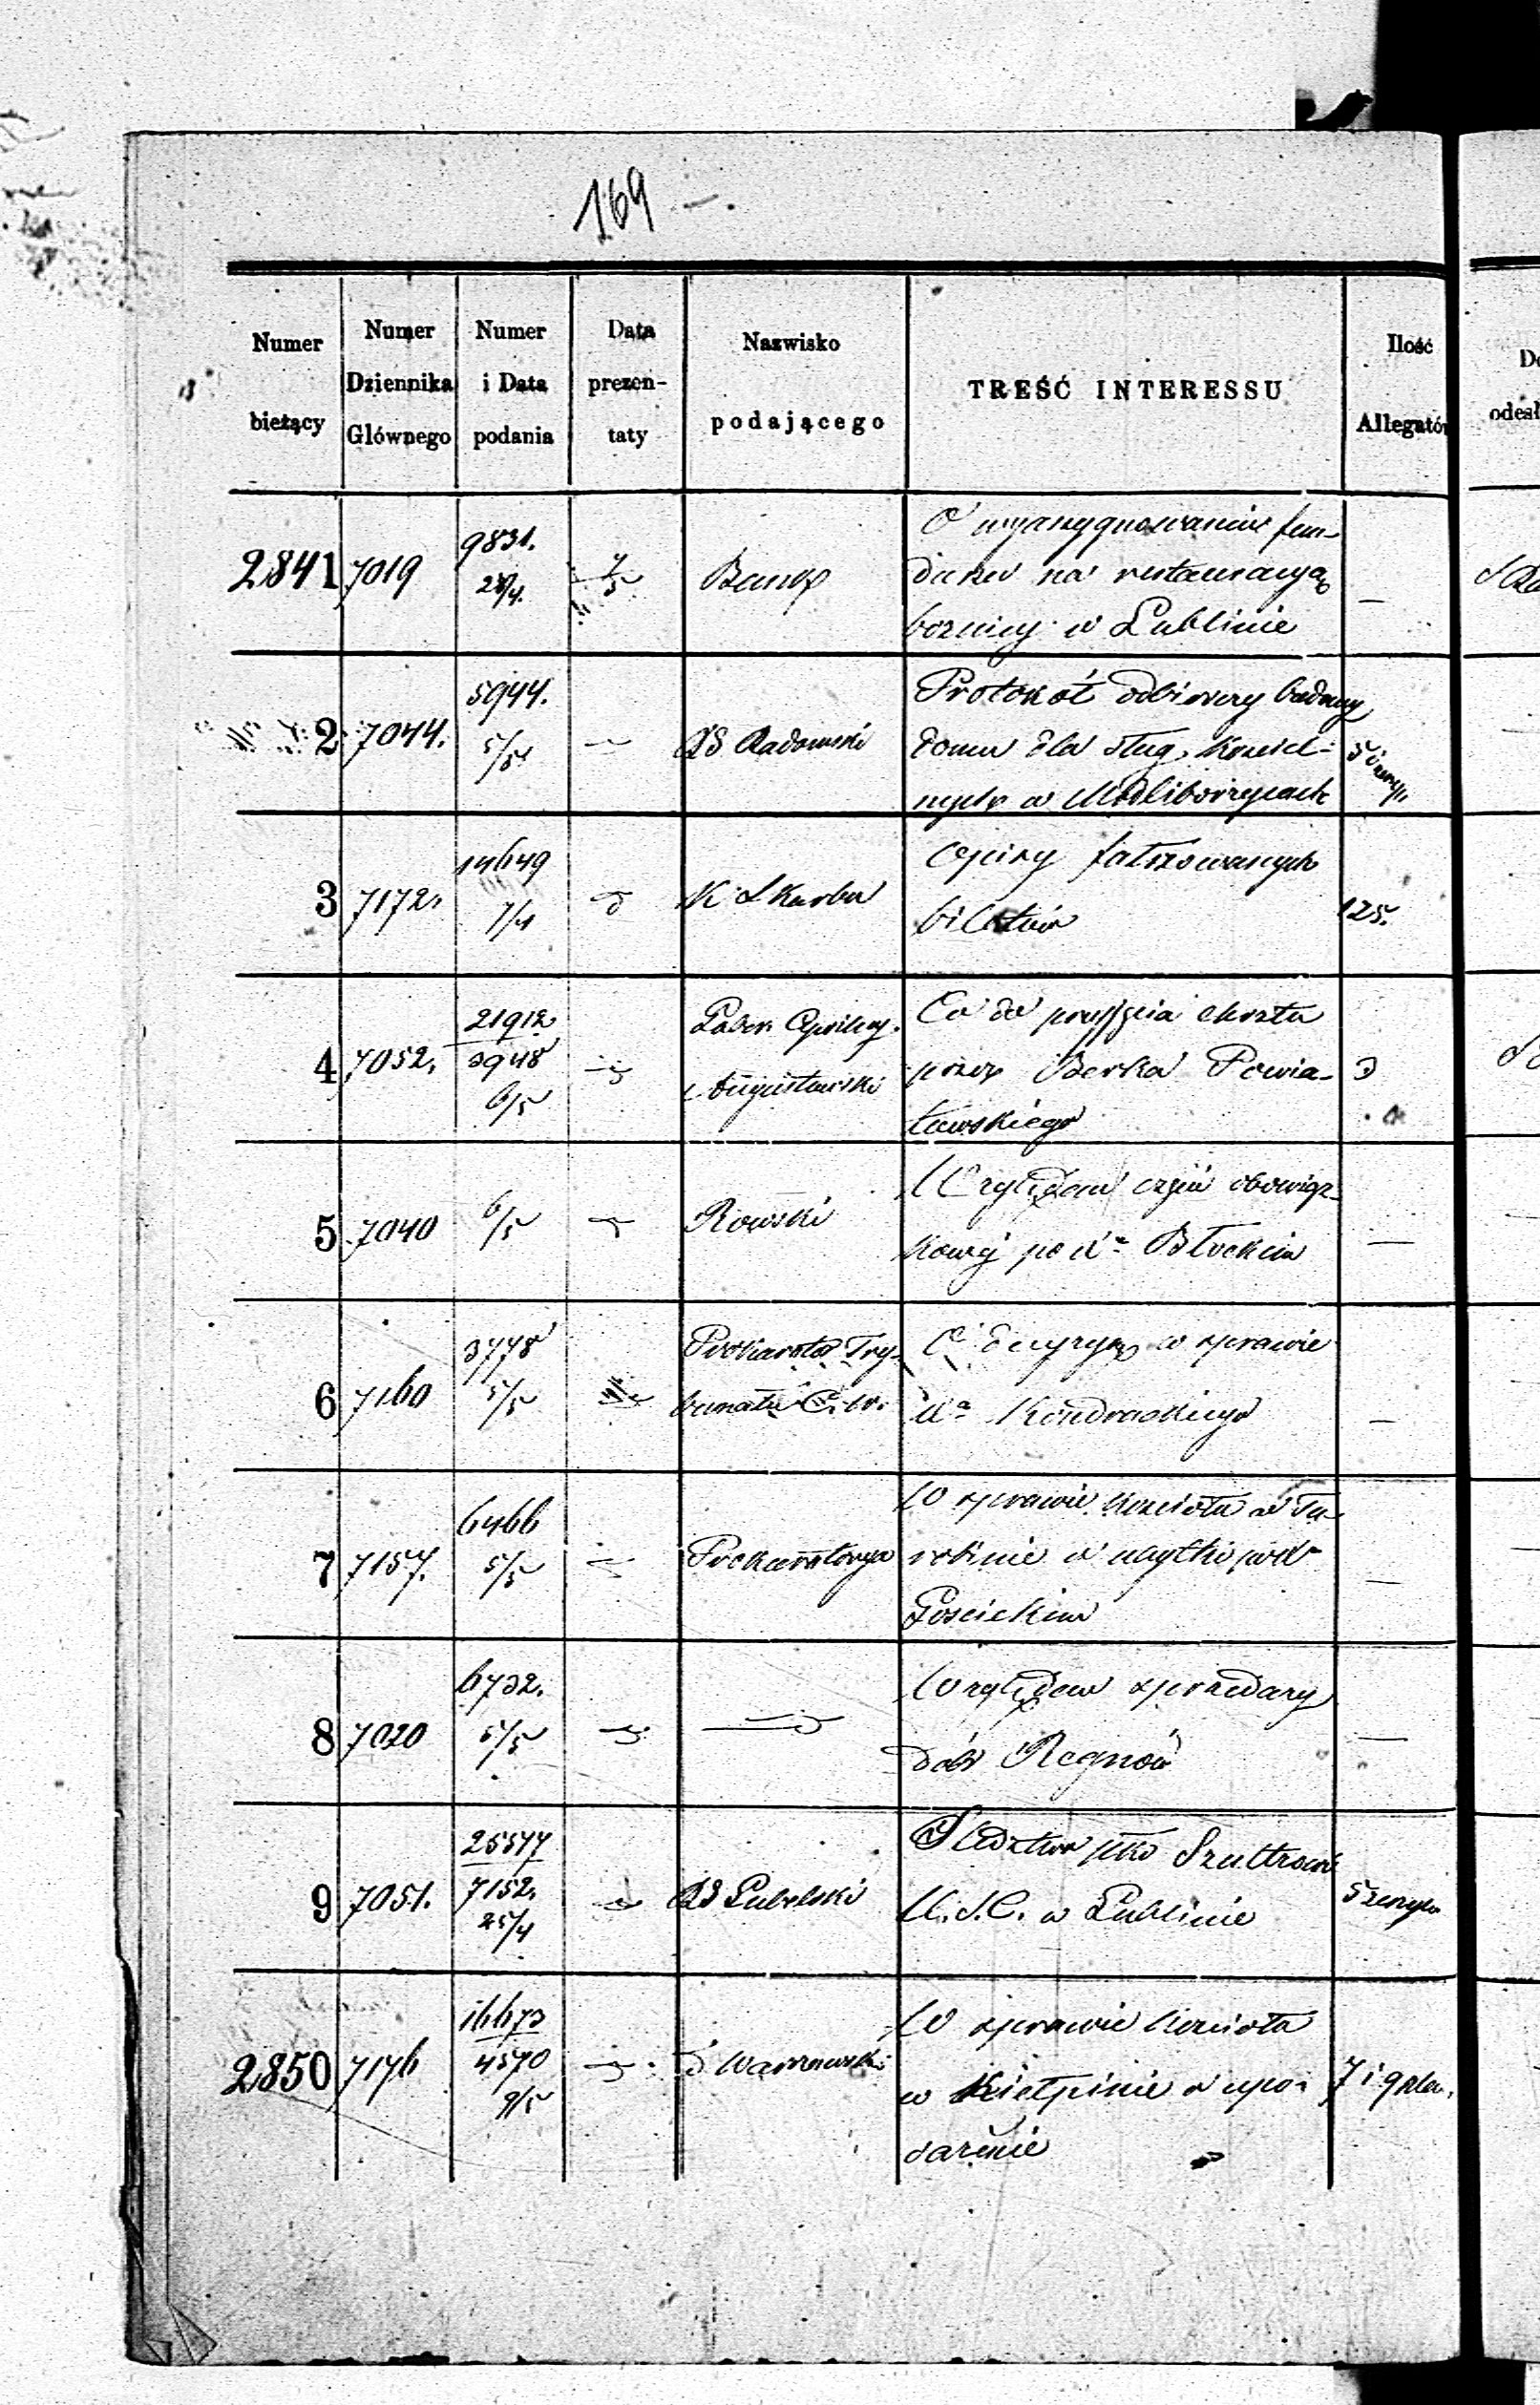 169 -.
Numer bieżący | Numer Dziennika Głównego | Numer i Data podania | Data prezentaty | Nazwisko podającego | TREŚĆ INTERESSU | Ilość Allegatów
2841 7019 9831. 28/4. 7/5 Bank
O wyassygnowanie fun-
duszu na restauracyą
bożnicy w Lublinie —
2 7044. 5944. 5/5 RG Radomski
Protokół odbiorczy budowy
domu dla sług kościel-
nych w Modliborzycach
3 7172. 14649 7/4 K. Skarbu
Opisy fałszowanych
biletów 125.
4 7052. 21912 3948 6/5 Guber. Cywilny
Augustowski
Co do przyjęcia chrztu
przez Berka Powia-
3
5 7040 6/5 Rowski
Względem części obowiąz-
kowej po Xe —
6 7160 3778 5/5 Prokurator Try-
bunału
O decyzyą w sprawie
Xa Kondrackiego —
7 7157. 6466 5/5 Prokuratorya
W sprawie kościoła w Tu-
robinie
Gościckim —
8 7020 6732. 5/5
Względem sprzedaży
dóbr Regnów —
9 7051. 25577 7152. 25/4 RG Lubelski
Śledztwo pko
U.S.C. w Lublinie
5 zeszyt.
2850 7176 16673 4570 9/5 d Warszawski
W sprawie kościoła
w Kiełpinie o upo-
sażenie
7 i 9 plan.